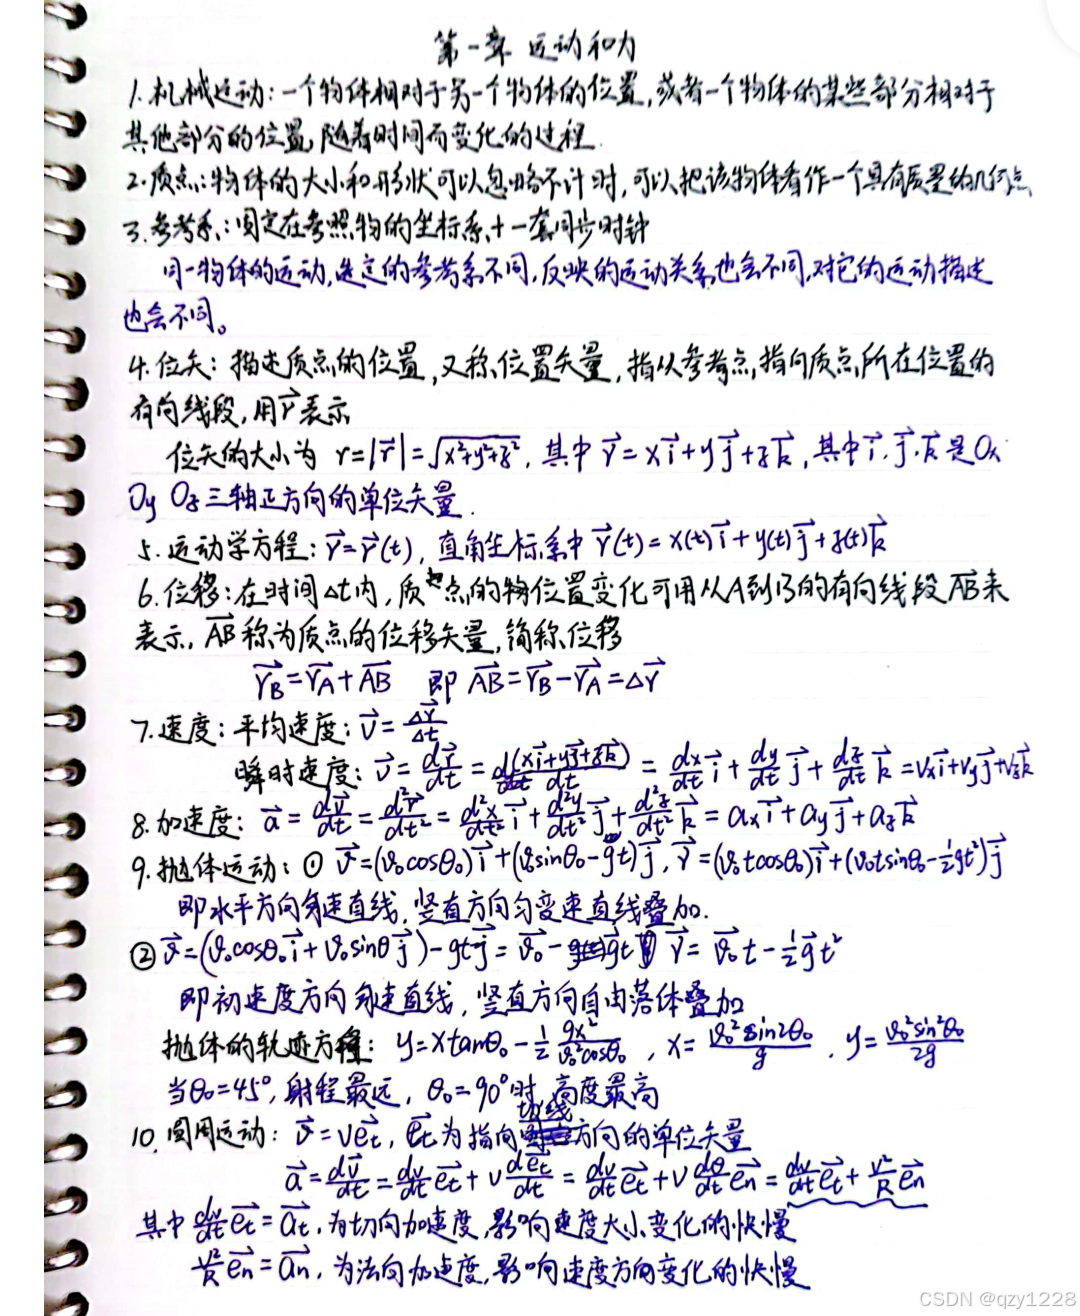 第一章 运动和力
1.机械运动:一个物体相对于另一个物体的位置,或者一个物体的某些部分相对于
其他部分的位置,随着时间而变化的过程.
2.质点:物体的大小和形状可以忽略不计时,可以把该物体看作一个具有质量的几何点
3.参考系:固定在参照物的坐标系+一套同步时钟
同一物体的运动,选定的参考系不同,反映的运动关系也会不同,对它的运动描述
也会不同。
4.位矢:描述质点的位置,又称位置矢量,指从参考点指向质点所在位置的
有向线段,用r⃗表示
位矢的大小为 r=|r⃗|=√(x²+y²+z²),其中 r⃗=xi⃗+yj⃗+zk⃗,其中i⃗.j⃗.k⃗是Ox
Oy Oz三轴正方向的单位矢量.
5.运动学方程:r⃗=r⃗(t),直角坐标系中 r⃗(t)=x(t)i⃗+y(t)j⃗+z(t)k⃗
6.位移:在时间Δt内,质点的位置变化可用从A到B的有向线段AB来
表示,AB⃗称为质点的位移矢量,简称位移
r⃗B=r⃗A+AB⃗ 即 AB⃗=r⃗B-r⃗A=Δr⃗
7.速度:平均速度:v⃗=Δr⃗/Δt
瞬时速度:v⃗=dr⃗/dt=d(xi⃗+yj⃗+zk⃗)/dt=dx/dt i⃗+dy/dt j⃗+dz/dt k⃗=vxi⃗+vyj⃗+vzk⃗
8.加速度:a⃗=dv⃗/dt=d²r⃗/dt²=d²x/dt² i⃗+d²y/dt² j⃗+d²z/dt² k⃗=axi⃗+ayj⃗+azk⃗
9.抛体运动:① v⃗=(v₀cosθ₀)i⃗+(v₀sinθ₀-gt)j⃗,r⃗=(v₀tcosθ₀)i⃗+(v₀tsinθ₀-½gt²)j⃗
即水平方向匀速直线,竖直方向匀变速直线叠加.
②v⃗=(v₀cosθ₀i⃗+v₀sinθj⃗)-gtj⃗=v⃗₀-g⃗t r⃗=v⃗₀t-½g⃗t²
即初速度方向匀速直线,竖直方向自由落体叠加
抛体的轨迹方程:y=xtanθ₀-½ gx²/v₀²cosθ₀,x=v₀²sin2θ₀/g,y=v₀²sin²θ₀/2g
当θ₀=45°,射程最远,θ₀=90°时,高度最高
10.圆周运动:v⃗=ve⃗t,e⃗t为指向切线方向的单位矢量
a⃗=dv⃗/dt=dv/dt e⃗t+v de⃗t/dt=dv/dt e⃗t+v dθ/dt e⃗n=dv/dt e⃗t+v²/R e⃗n
其中 dv/dt e⃗t=a⃗t,为切向加速度,影响速度大小变化的快慢
v²/R e⃗n=a⃗n,为法向加速度,影响速度方向变化的快慢
CSDN @qzy1228